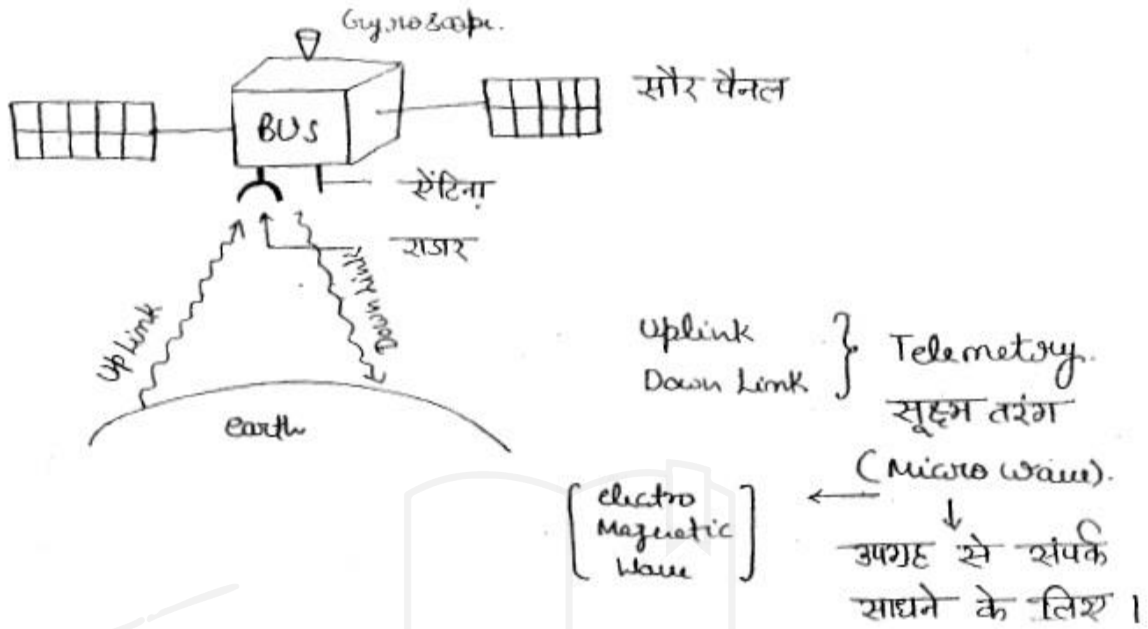 Gyroscope.
सौर पैनल
BUS
ऐंटिना
राडार
Up Link
Down Link
earth
Uplink
Down Link
Telemetry.
सूक्ष्म तरंग
(Micro wave).
electro
Magnetic
Wave
उपग्रह से संपर्क
साधने के लिए ।